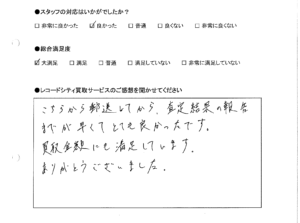 ●スタッフの対応はいかがでしたか？
□ 非常に良かった ☑ 良かった □ 普通 □ 良くない □ 非常に良くない
●総合満足度
☑ 大満足 □ 満足 □ 普通 □ 満足していない □ 非常に満足していない
●レコードシティ買取サービスのご感想を聞かせてください
こちらから郵送してから、査定結果の報告
までが早くてとても良かったです。
買取金額にも満足しています。
ありがとうございました。